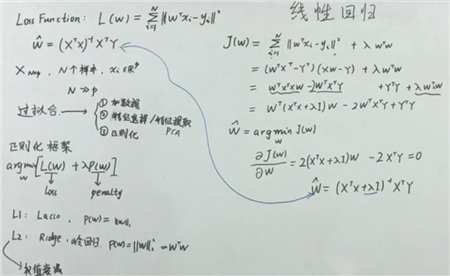 Loss Function: L(w) = Σ_{i=1}^{N} ||wᵀxᵢ - yᵢ||²
Ŵ = (XᵀX)⁻¹XᵀY
X_{N×p}, N个样本, xᵢ∈ℝᵖ
N ≫ p
过拟合 →
① 加数据
② 特征选择/特征提取
PCA
③ 正则化
正则化框架
argmin_w [L(w) + λP(w)]
loss penalty
L1: Lasso, P(w)=||w||₁
L2: Ridge, 岭回归, P(w)=||w||₂² = wᵀw
权值衰减
线性回归
J(w) = Σ_{i=1}^{N} ||wᵀxᵢ-yᵢ||² + λwᵀw
= (wᵀxᵀ-Yᵀ)(xw-Y) + λwᵀw
= wᵀxᵀxw - 2wᵀxᵀY + YᵀY + λwᵀw
= wᵀ(xᵀx+λI)w - 2wᵀxᵀY + YᵀY
Ŵ = argmin_w J(w)
∂J(w)/∂w = 2(xᵀx+λI)w - 2xᵀY = 0
Ŵ = (XᵀX+λI)⁻¹XᵀY